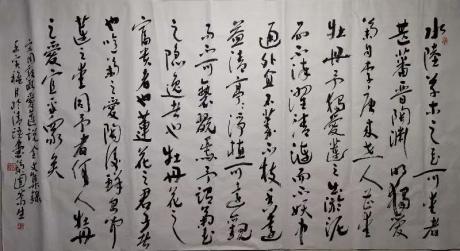 水陸草木之花可愛者
甚蕃晋陶渊明獨愛
菊自李唐来世人盛愛
牡丹予獨愛蓮之出淤泥
而不染濯清漣而不妖中
通外直不蔓不枝香遠
益清亭亭净植可遠觀
而不可褻翫焉予謂菊花
之隐逸者也牡丹花之
富貴者也蓮花之君子者
也噫菊之愛陶後鮮有聞
蓮之愛同予者何人牡丹
之愛宜乎衆矣
宋周敦頤愛蓮説